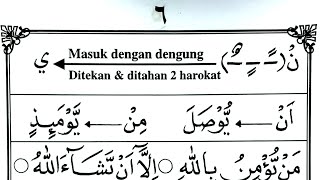 ٦
نْ (ــًــ ــٍــ ــٌــ) Masuk dengan dengung ي
Ditekan & ditahan 2 harokat
اَنْ ← يُّوْصَلَ مِنْ ← يَّوْمَئِذٍ
مَنْ يُّؤْمِنُ بِاللهِ ○ اِلَّآ اَنْ يَّشَآءَ اللهُ ○